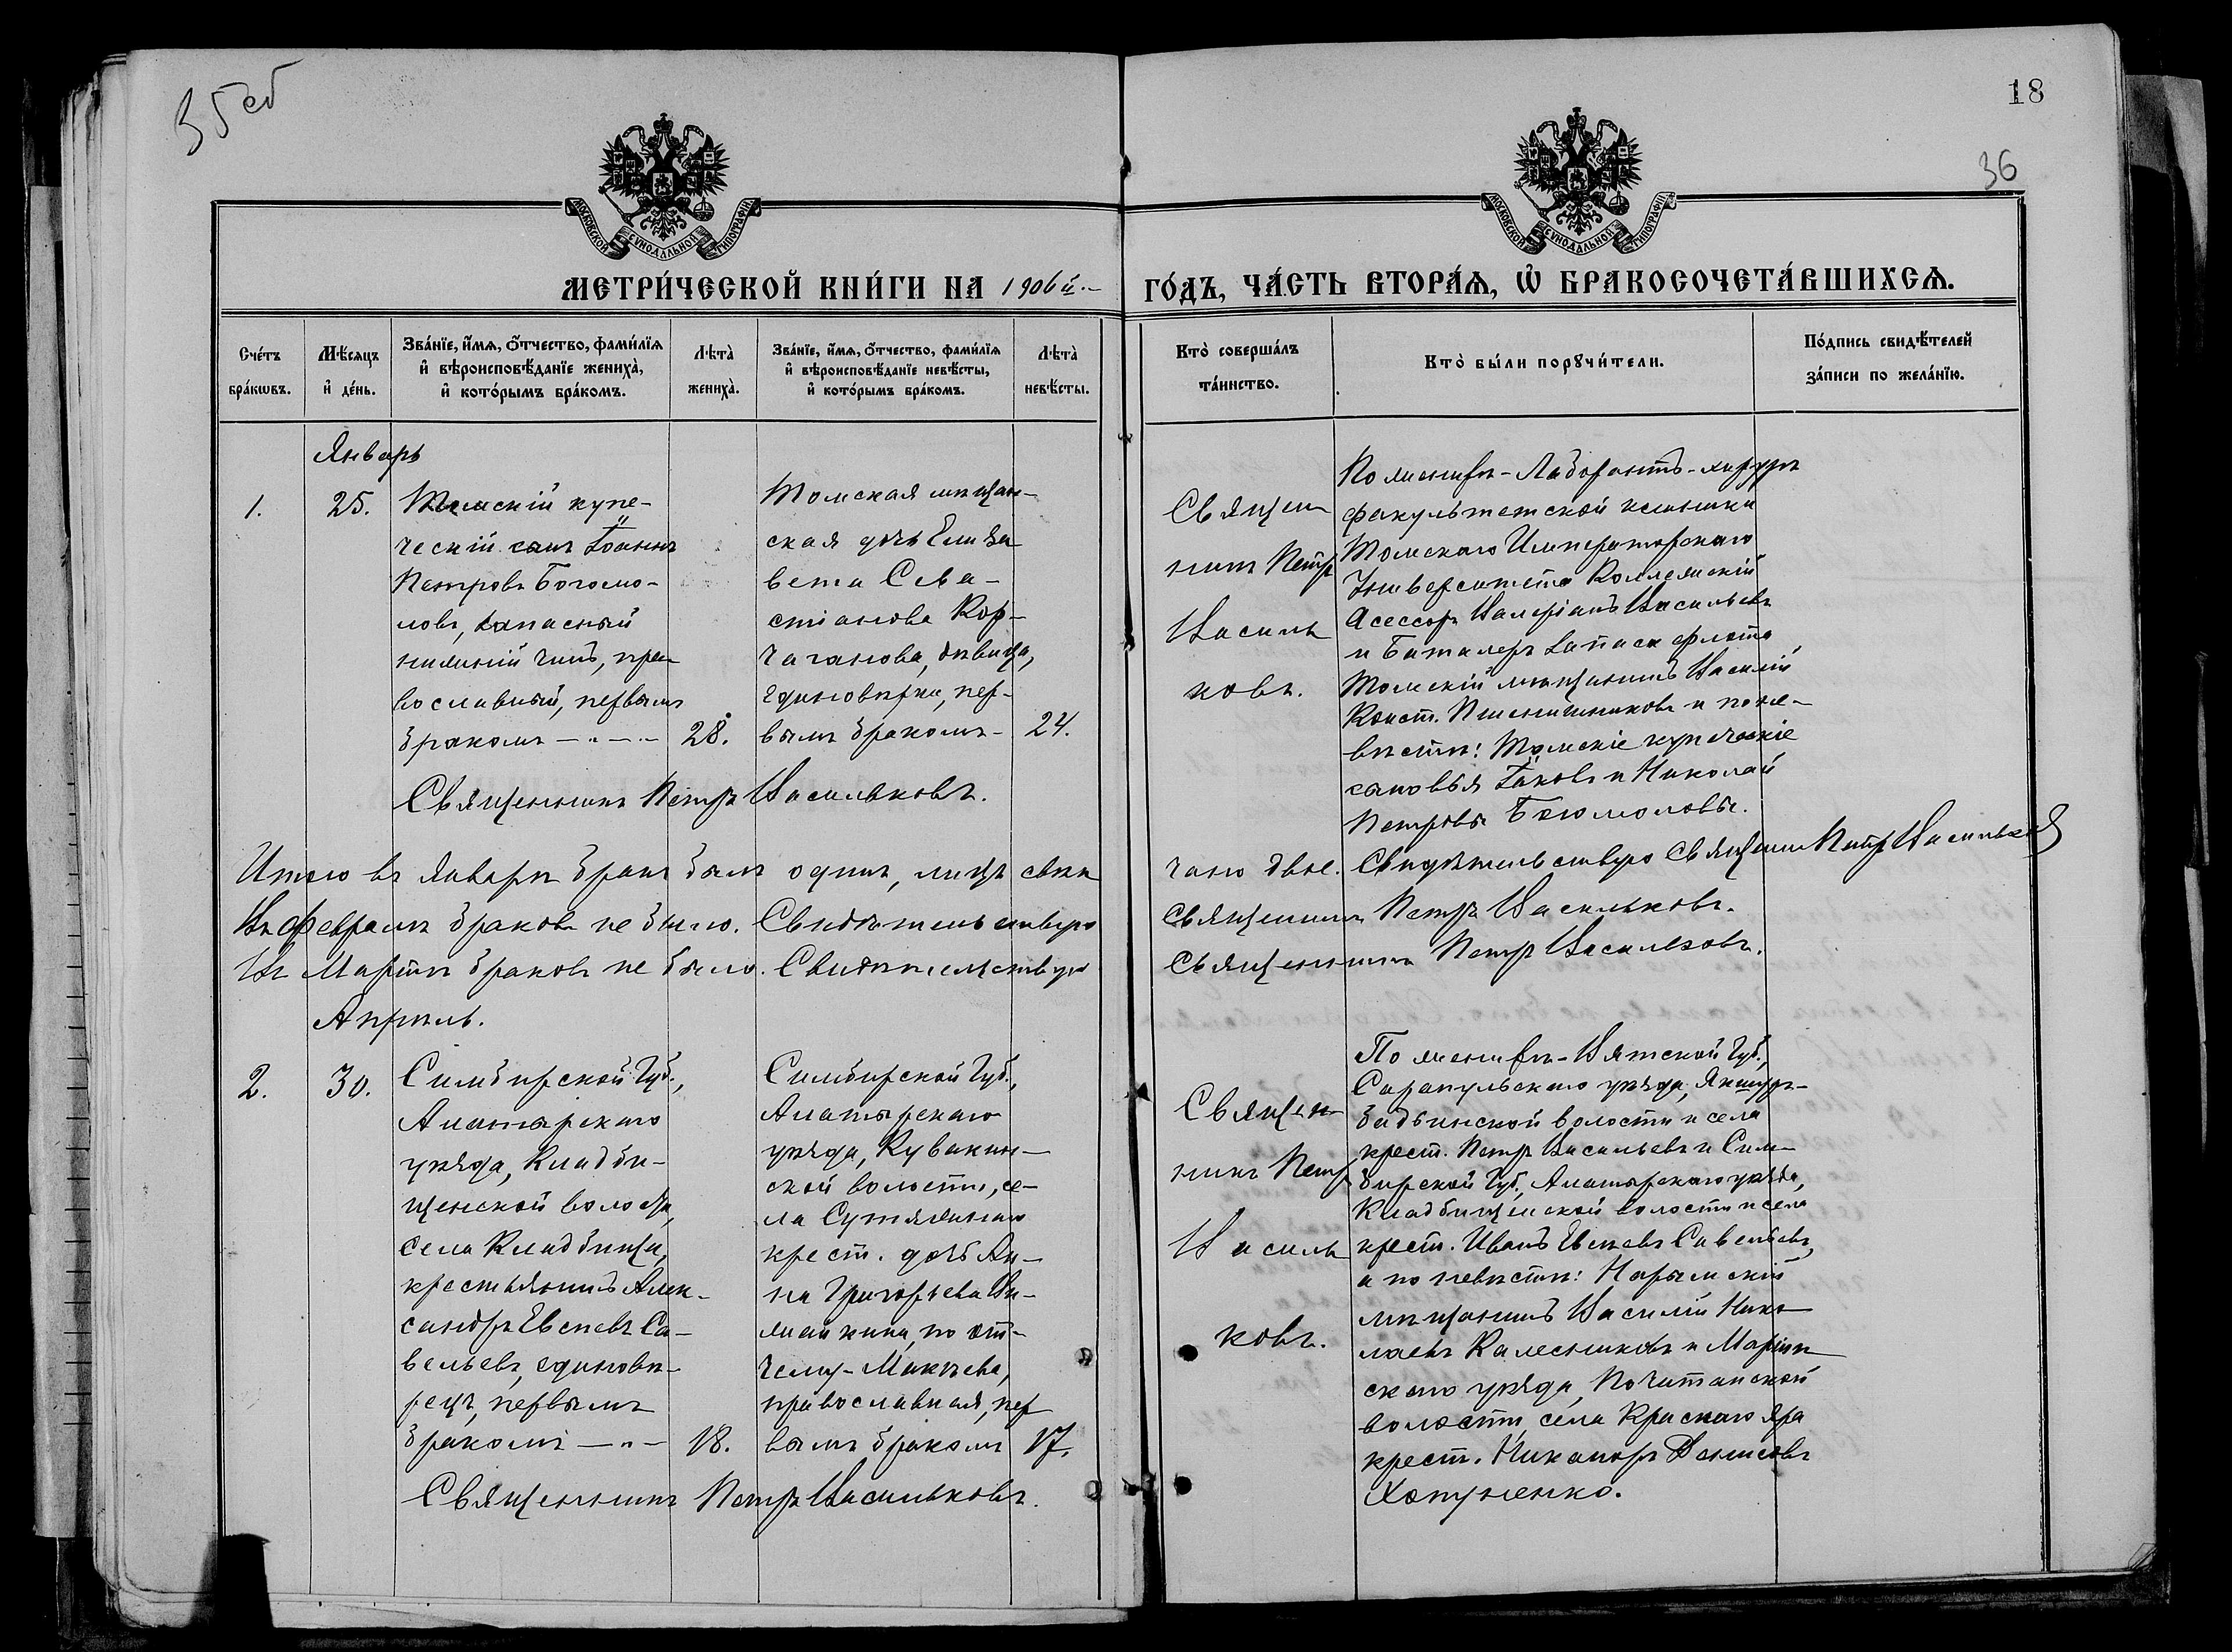 35 об
18
36
МОСКОВСКОЙ СѴНОДАЛЬНОЙ ТИПОГРАФІИ
МОСКОВСКОЙ СѴНОДАЛЬНОЙ ТИПОГРАФІИ
МЕТРИ́ЧЕСКОЙ КНИ́ГИ НА 1906й.
ГО́ДЪ, ЧА́СТЬ ВТОРА́Ѧ, Ѡ҆ БРАКОСОЧЕТА́ВШИХСѦ.
Сче́тъ бра́кѡвъ.
Мѣ́сѧцъ и҆ де́нь.
Зва́нїе, и҆́мѧ, ѻ҆́тчество, фами́лїѧ
и҆ вѣроисповѣ́данїе жениха̀,
и҆ кото́рымъ бра́комъ.
Лѣта̀ жениха̀.
Зва́нїе, и҆́мѧ, ѻ҆́тчество, фами́лїѧ
и҆ вѣроисповѣ́данїе невѣ́сты,
и҆ кото́рымъ бра́комъ.
Лѣта̀ невѣ́сты.
Кто̀ соверша́лъ
та́инство.
Кто̀ бы́ли порꙋчи́тели.
По́дпись свидѣ́телей
за́писи по жела́нїю.
Январь
1.
25.
Томскій купе-
ческій сынъ Іоаннъ
Петровъ Богомо-
ловъ, запасный
нижній чинъ, пра-
вославный, первымъ
бракомъ — „ —
28.
Томская мѣщан-
ская дочь Елиза
вета Сева-
стіанова Кор-
чаганова, дѣвица,
единовѣрка, пер-
вымъ бракомъ -
24.
Священникъ Петръ Васильковъ.
Священ
никъ Петръ
Василь
ковъ.
По женихѣ - Лаборантъ-хирургъ
факультетской клиники
Томскаго Императорскаго
Университета Коллежскій
Асессоръ Валеріанъ Васильевъ
и Баталеръ запаса флота
Томскій мѣщанинъ Василій
Конст. Пшеничниковъ и по не-
вѣстѣ: Томскіе купеческіе
сыновья Іаковъ и Николай
Петровы Богомоловы.
Итого въ Январѣ бракъ былъ одинъ, лицъ свѣн
чано двое. Свидѣтельствую Священникъ Петръ Васильковъ
Въ Февралѣ браковъ не было. Свидѣтельствую
Священникъ Петръ Васильковъ.
Въ Мартѣ браковъ не было. Свидѣтельствую
Священникъ Петръ Васильковъ.
Апрѣль.
2.
30.
Симбирской Губ.,
Алатырскаго
уѣзда, Кладби-
щенской волости,
села Кладбищи,
крестьянинъ Алек-
сандръ Евсѣевъ Са-
вельевъ, единовѣ-
рецъ, первымъ
бракомъ — „ —
18.
Симбирской Губ.,
Алатырскаго
уѣзда, Кувакин-
ской волости, се-
ла Сутяжнаго
крест. дочь Ан-
на Григорьева
по от-
чему - Макѣева,
православная, пер
вымъ бракомъ
17.
Священникъ Петръ Васильковъ.
Священ-
никъ Петръ
Василь
ковъ.
По женихѣ - Вятской Губ.,
Сарапульскаго уѣзда, Якшуръ-
Бодьинской волости и села
крест. Петръ Васильевъ и Сим-
бирской Губ., Алатырскаго уѣзда,
Кладбищенской волости и села
крест. Иванъ Евсѣевъ Савельевъ,
а по невѣстѣ: Нарымскій
мѣщанинъ Василій Нико
лаевъ Калесниковъ и Маріин
скаго уѣзда, Почитанской
волости, села Краснаго Яра
крест. Никаноръ Денисовъ
Хатуненко.